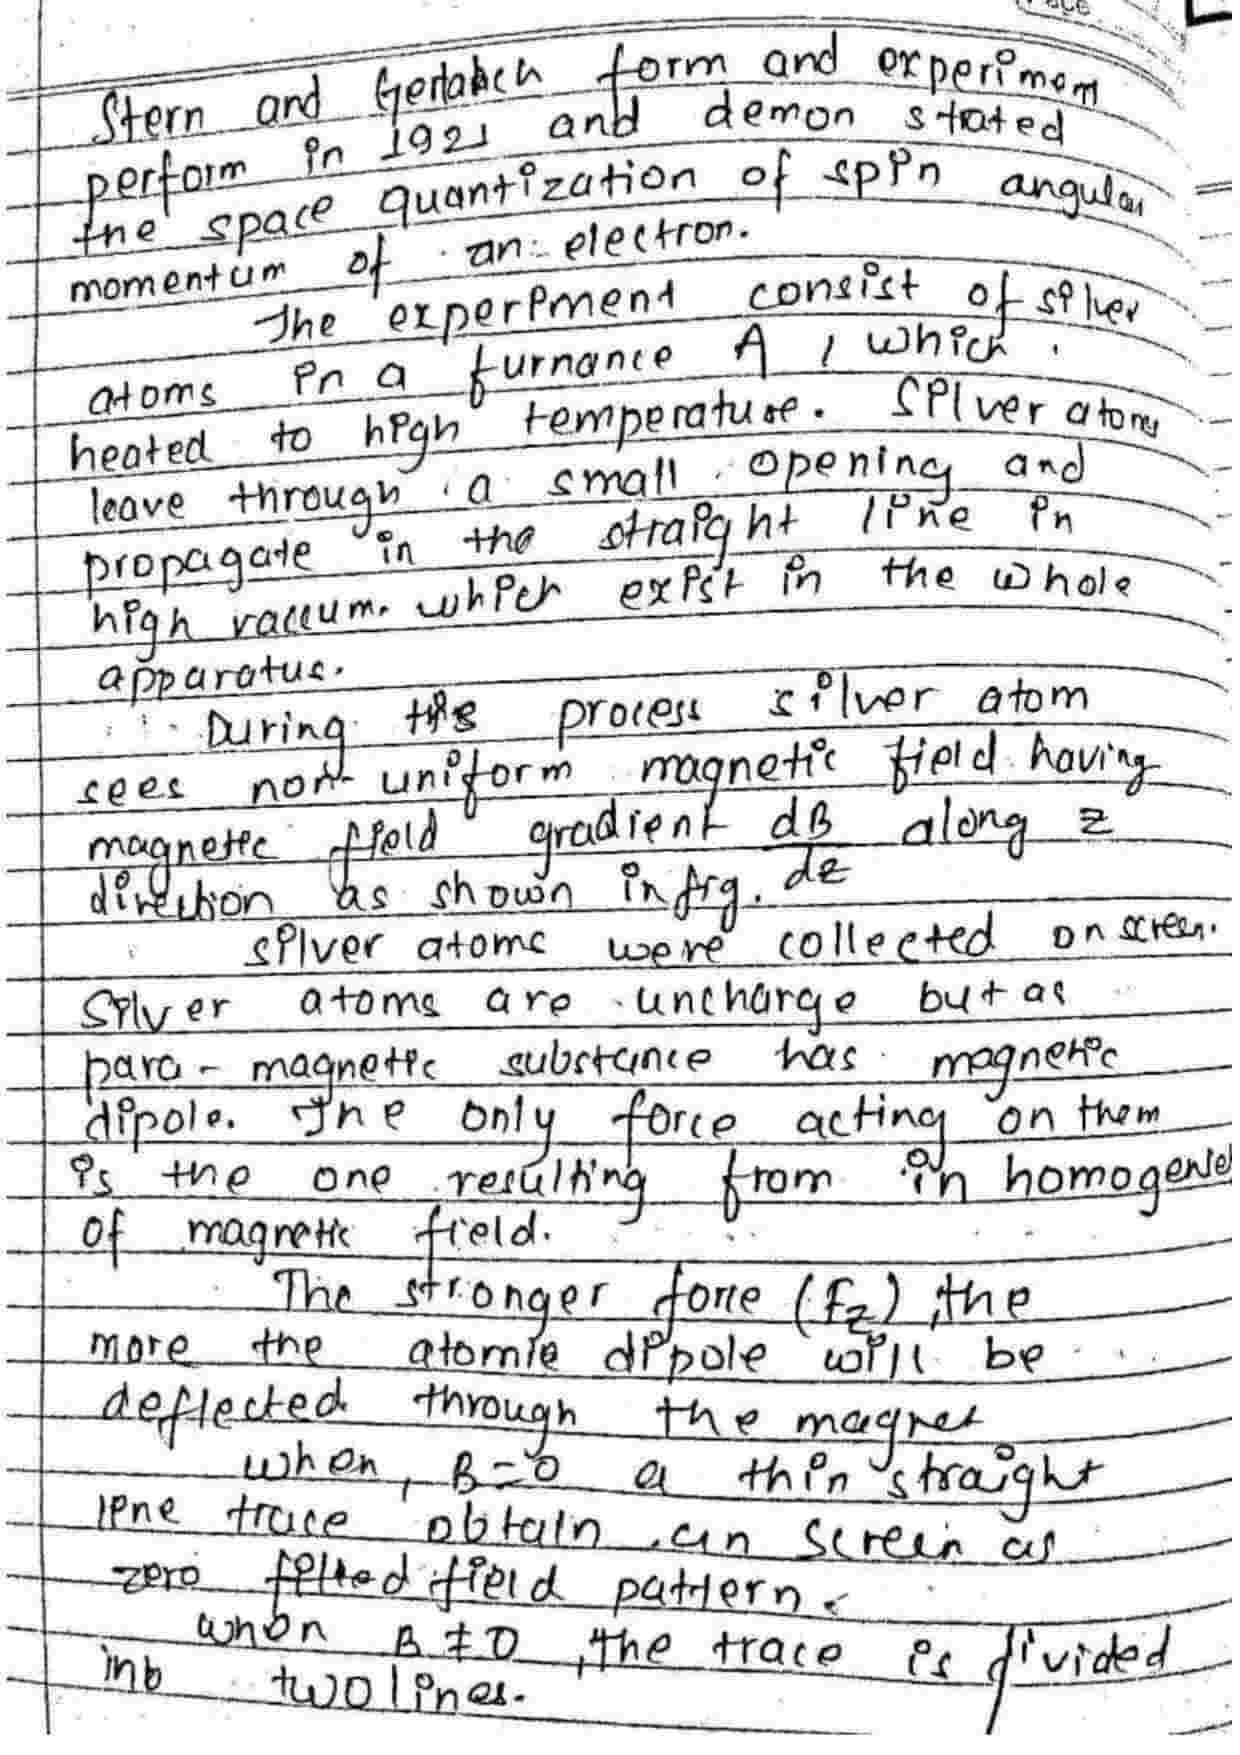 Stern and Gerlabch form and experiment
perform in 1921 and demon strated
the space quantization of spin angular
momentum of an electron.
The experiment consist of silver
atoms in a furnance A, which
heated to high temperature. Silver atoms
leave through a small opening and
propagate in the straight line in
high vaccum. which exist in the whole
apparatus.
During this process silver atom
sees non-uniform magnetic field having
magnetic field gradient dB/dz along z
direction as shown in fig.
silver atoms were collected on screen.
Silver atoms are uncharge but as
para-magnetic substance has magnetic
dipole. The only force acting on them
is the one resulting from in homogenie
of magnetic field.
The stronger force (Fz), the
more the atomic dipole will be
deflected through the magnet
when, B=0 a thin straight
line trace obtain an screen as
zero field pattern.
when B≠0, the trace is divided
into two lines.